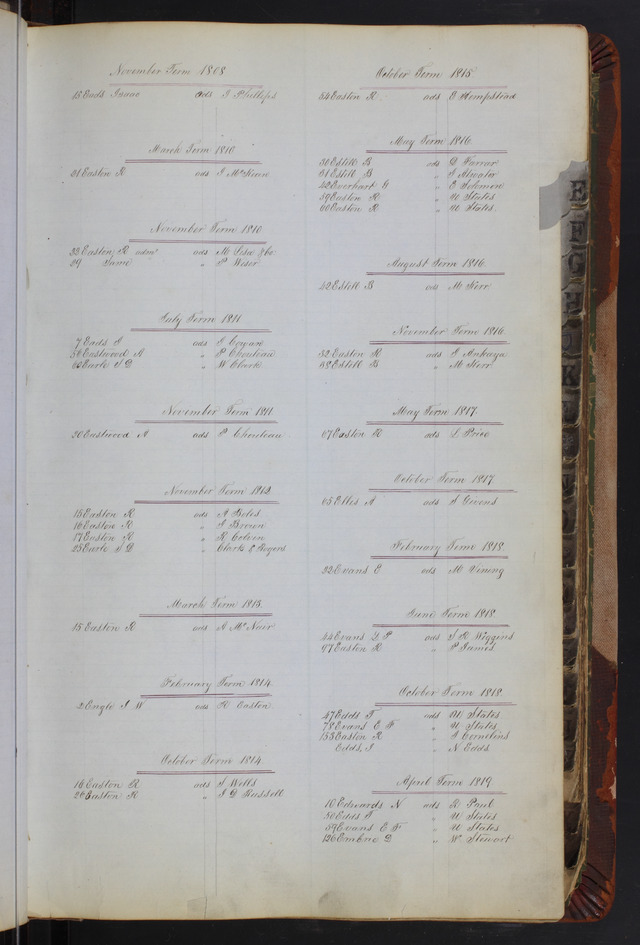 November Term 1808
15 Eads Isaac ads J Phillips
March Term 1810
31 Easton R ads J McKean
November Term 1810
33 Easton, R admr ads M Lisa &Co
29 Same " P Weser
July Term 1811
7 Eads J ads J Cowan
56 Eastwood A " P Chouteau
Earle J D " W Clark
November Term 1811
30 Eastwood A ads P Chouteau
November Term 1812
15 Easton R ads A Boles
16 Easton R " J Brown
17 Easton R " R Colvin
25 Earle J D " Clark & Rogers
March Term 1813.
15 Easton R ads A McNair
February Term 1814
2 Engle J W ads R Easton
October Term 1814
16 Easton R ads J Wells
20 Easton R " J G Russell
October Term 1815
54 Easton R. ads E Hempstead
May Term 1816
30 Estill B ads D Farrar
31 Estill B " J Atwater
42 Everhart G " E Solomon
59 Easton R " U States
60 Easton R " U States.
August Term 1816
42 Estill B ads M Kerr
November Term 1816
32 Easton R ads J Ankaya
58 Estill B " M Kerr
May Term 1817
67 Easton R ads L Price
October Term 1817
65 Elles A ads S Givens
February Term 1818
22 Evans E ads M Vening
June Term 1818
44 Evans D P ads J R Wiggins
97 Easton R " P James
October Term 1818
47 Edds J ads U States
78 Evans E F " U States
133 Easton R " A Cornelius
Edds, J " N Edds
April Term 1819
10 Edwards N ads R Paul
50 Edds J " U States
59 Evans E F " U States
126 Embrie D " Wm Stewart
E
F
G
H
IJ
K
L